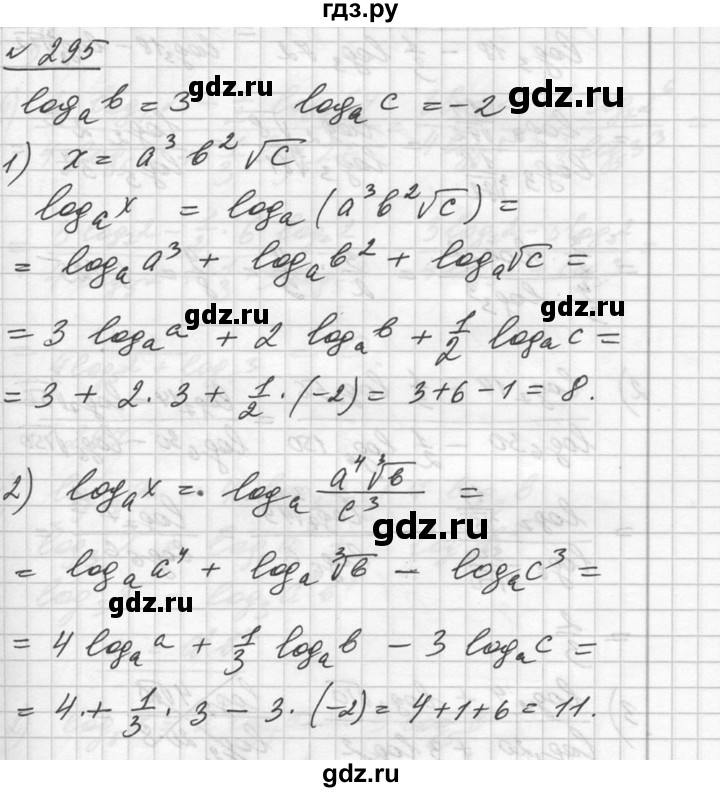 гдз.ру
№ 295
logₐ b = 3 logₐ c = -2
gdz.ru gdz.ru
1) x = a³ b² √c
logₐ x = logₐ (a³b²√c) =
= logₐ a³ + logₐ b² + logₐ √c =
gdz.ru gdz.ru
= 3 logₐ a + 2 logₐ b + 1/2 logₐ c =
= 3 + 2·3 + 1/2·(-2) = 3+6-1 = 8.
2) logₐ x = logₐ a⁴∛b/c³ =
gdz.ru
= logₐ a⁴ + logₐ ∛b - logₐ c³ =
gdz.ru
= 4 logₐ a + 1/3 logₐ b - 3 logₐ c =
= 4 + 1/3 · 3 - 3·(-2) = 4+1+6 = 11.
gdz.ru